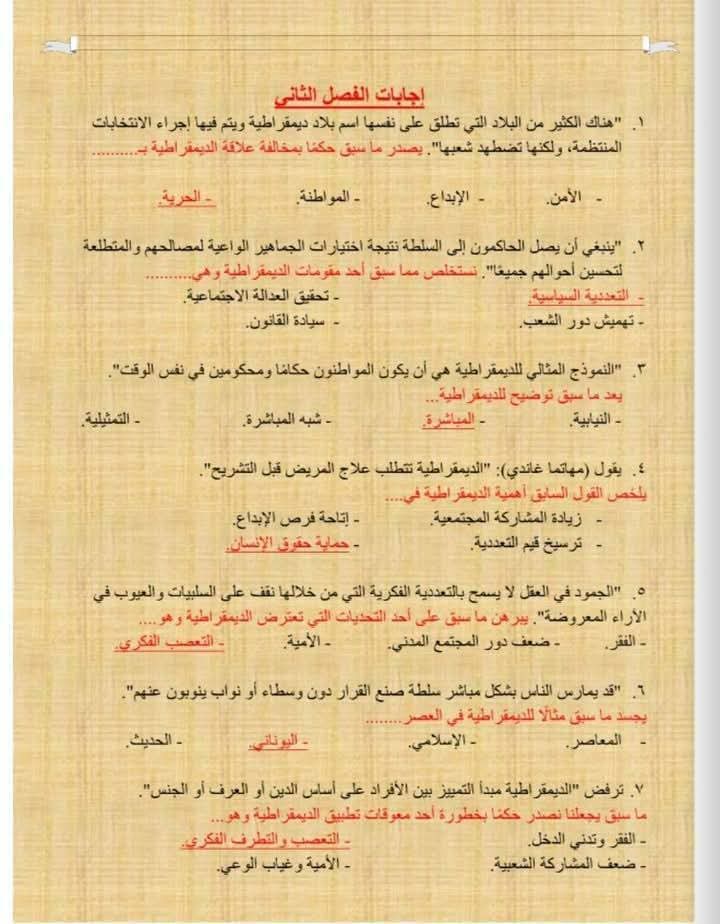 إجابات الفصل الثاني
١. "هناك الكثير من البلاد التي تطلق على نفسها اسم بلاد ديمقراطية ويتم فيها إجراء الانتخابات
المنتظمة، ولكنها تضطهد شعبها". يصدر ما سبق حكمًا بمخالفة علاقة الديمقراطية بـ..........
- الأمن. - الإبداع. - المواطنة. - الحرية.
٢. "ينبغي أن يصل الحاكمون إلى السلطة نتيجة اختيارات الجماهير الواعية لمصالحهم والمتطلعة
لتحسين أحوالهم جميعًا". نستخلص مما سبق أحد مقومات الديمقراطية وهي..........
- التعددية السياسية. - تحقيق العدالة الاجتماعية.
- تهميش دور الشعب. - سيادة القانون.
٣. "النموذج المثالي للديمقراطية هي أن يكون المواطنون حكامًا ومحكومين في نفس الوقت".
يعد ما سبق توضيح للديمقراطية...
- النيابية. - المباشرة. - شبه المباشرة. - التمثيلية.
٤. يقول (مهاتما غاندي): "الديمقراطية تتطلب علاج المريض قبل التشريح".
يلخص القول السابق أهمية الديمقراطية في....
- زيادة المشاركة المجتمعية. - إتاحة فرص الإبداع.
- ترسيخ قيم التعددية. - حماية حقوق الإنسان.
٥. "الجمود في العقل لا يسمح بالتعددية الفكرية التي من خلالها نقف على السلبيات والعيوب في
الآراء المعروضة". يبرهن ما سبق على أحد التحديات التي تعترض الديمقراطية وهو....
- الفقر. - ضعف دور المجتمع المدني. - الأمية. - التعصب الفكري.
٦. "قد يمارس الناس بشكل مباشر سلطة صنع القرار دون وسطاء أو نواب ينوبون عنهم".
يجسد ما سبق مثالًا للديمقراطية في العصر........
- المعاصر. - الإسلامي. - اليوناني. - الحديث.
٧. ترفض "الديمقراطية مبدأ التمييز بين الأفراد على أساس الدين أو العرف أو الجنس".
ما سبق يجعلنا نصدر حكمًا بخطورة أحد معوقات تطبيق الديمقراطية وهو...
- الفقر وتدني الدخل. - التعصب والتطرف الفكري.
- ضعف المشاركة الشعبية. - الأمية وغياب الوعي.